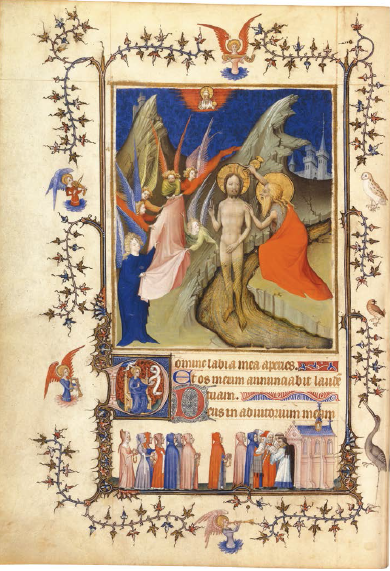 Domine labia mea aperies.
Et os meum annunciabit laude
tuam.
Deus in adiutorium meum